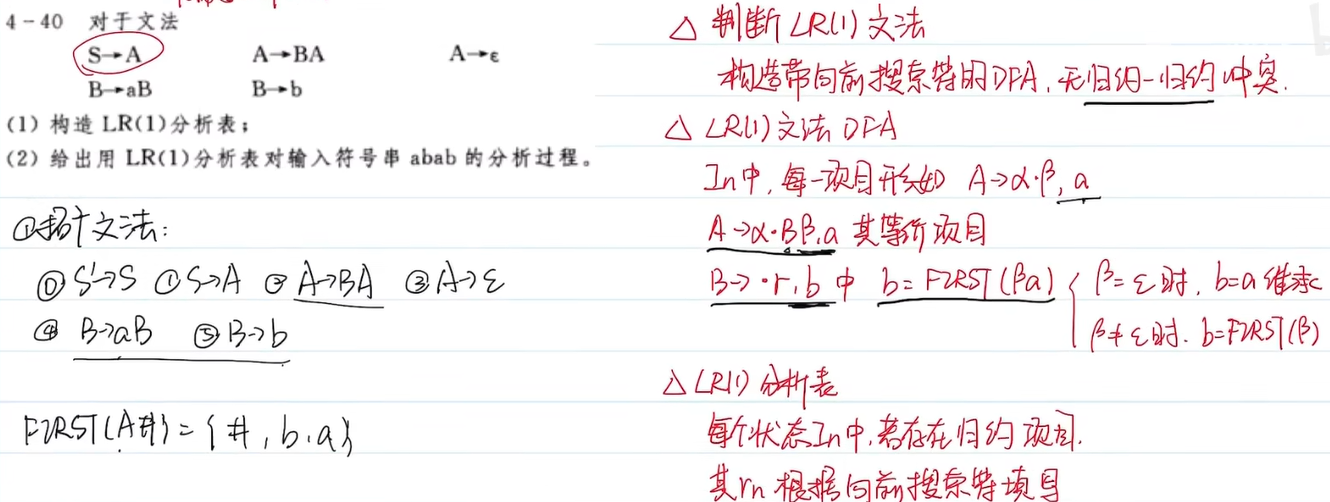 4-40 对于文法
S→A A→BA A→ε
B→aB B→b
(1) 构造 LR(1)分析表；
(2) 给出用 LR(1)分析表对输入符号串 abab 的分析过程。
①拓广文法:
⓪S'→S ①S→A ②A→BA ③A→ε
④B→aB ⑤B→b
FIRST(A#)={#,b,a}
△ 判断 LR(1) 文法
构造带向前搜索符的DFA,无归约-归约冲突.
△ LR(1)文法 DFA
In中,每一项目形如 A→α·β,a
A→α·Bβ,a 其等价项目
B→·r,b 中 b=FIRST(βa) { β=ε时, b=a 继承
β≠ε时. b=FIRST(β)
△ LR(1) 分析表
每个状态In中,若存在归约项目.
其rn 根据向前搜索符填写